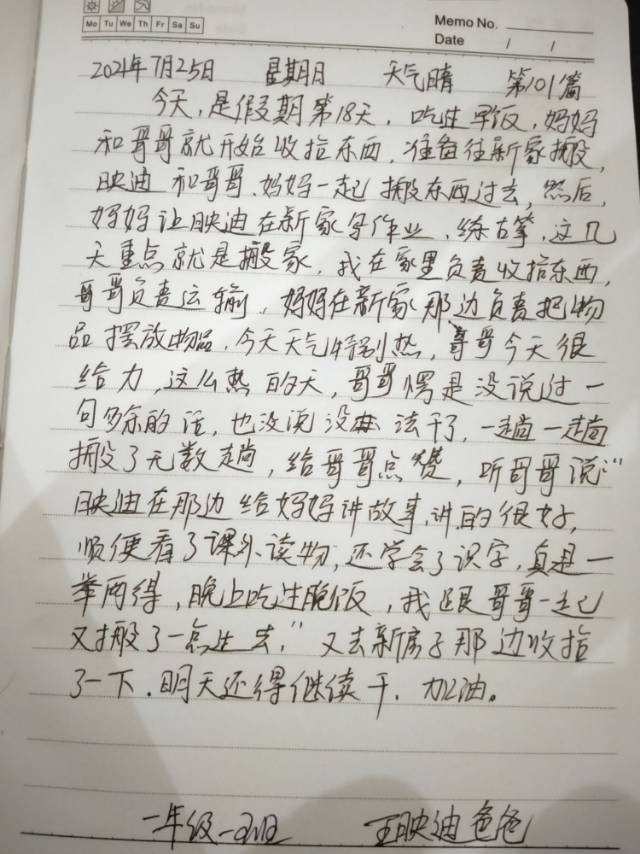 Mo Tu We Th Fr Sa Su
Memo No.
Date / /
2021年7月25日 星期日 天气晴 第101篇
今天,是假期第18天,吃过早饭,妈妈
和哥哥就开始收拾东西,准备往新家搬,
映迪和哥哥.妈妈一起搬东西过去,然后,
妈妈让映迪在新家写作业,练古筝,这几
天重点就是搬家,我在家里负责收拾东西,
哥哥负责运输,妈妈在新家那边负责把物
品摆放物品,今天天气特别热,哥哥今天很
给力,这么热的天,哥哥愣是没说过一
句多余的话,也没说没法干了,一趟一趟
搬了无数趟,给哥哥点赞,听哥哥说"
映迪在那边给妈妈讲故事,讲的很好,
顺便看了课外读物,还学会了识字,真是一
举两得,晚上吃过晚饭,我跟哥哥一起
又搬了一点过去,"又去新房子那边收拾
了一下.明天还得继续干.加油。
一年级一班 王映迪爸爸